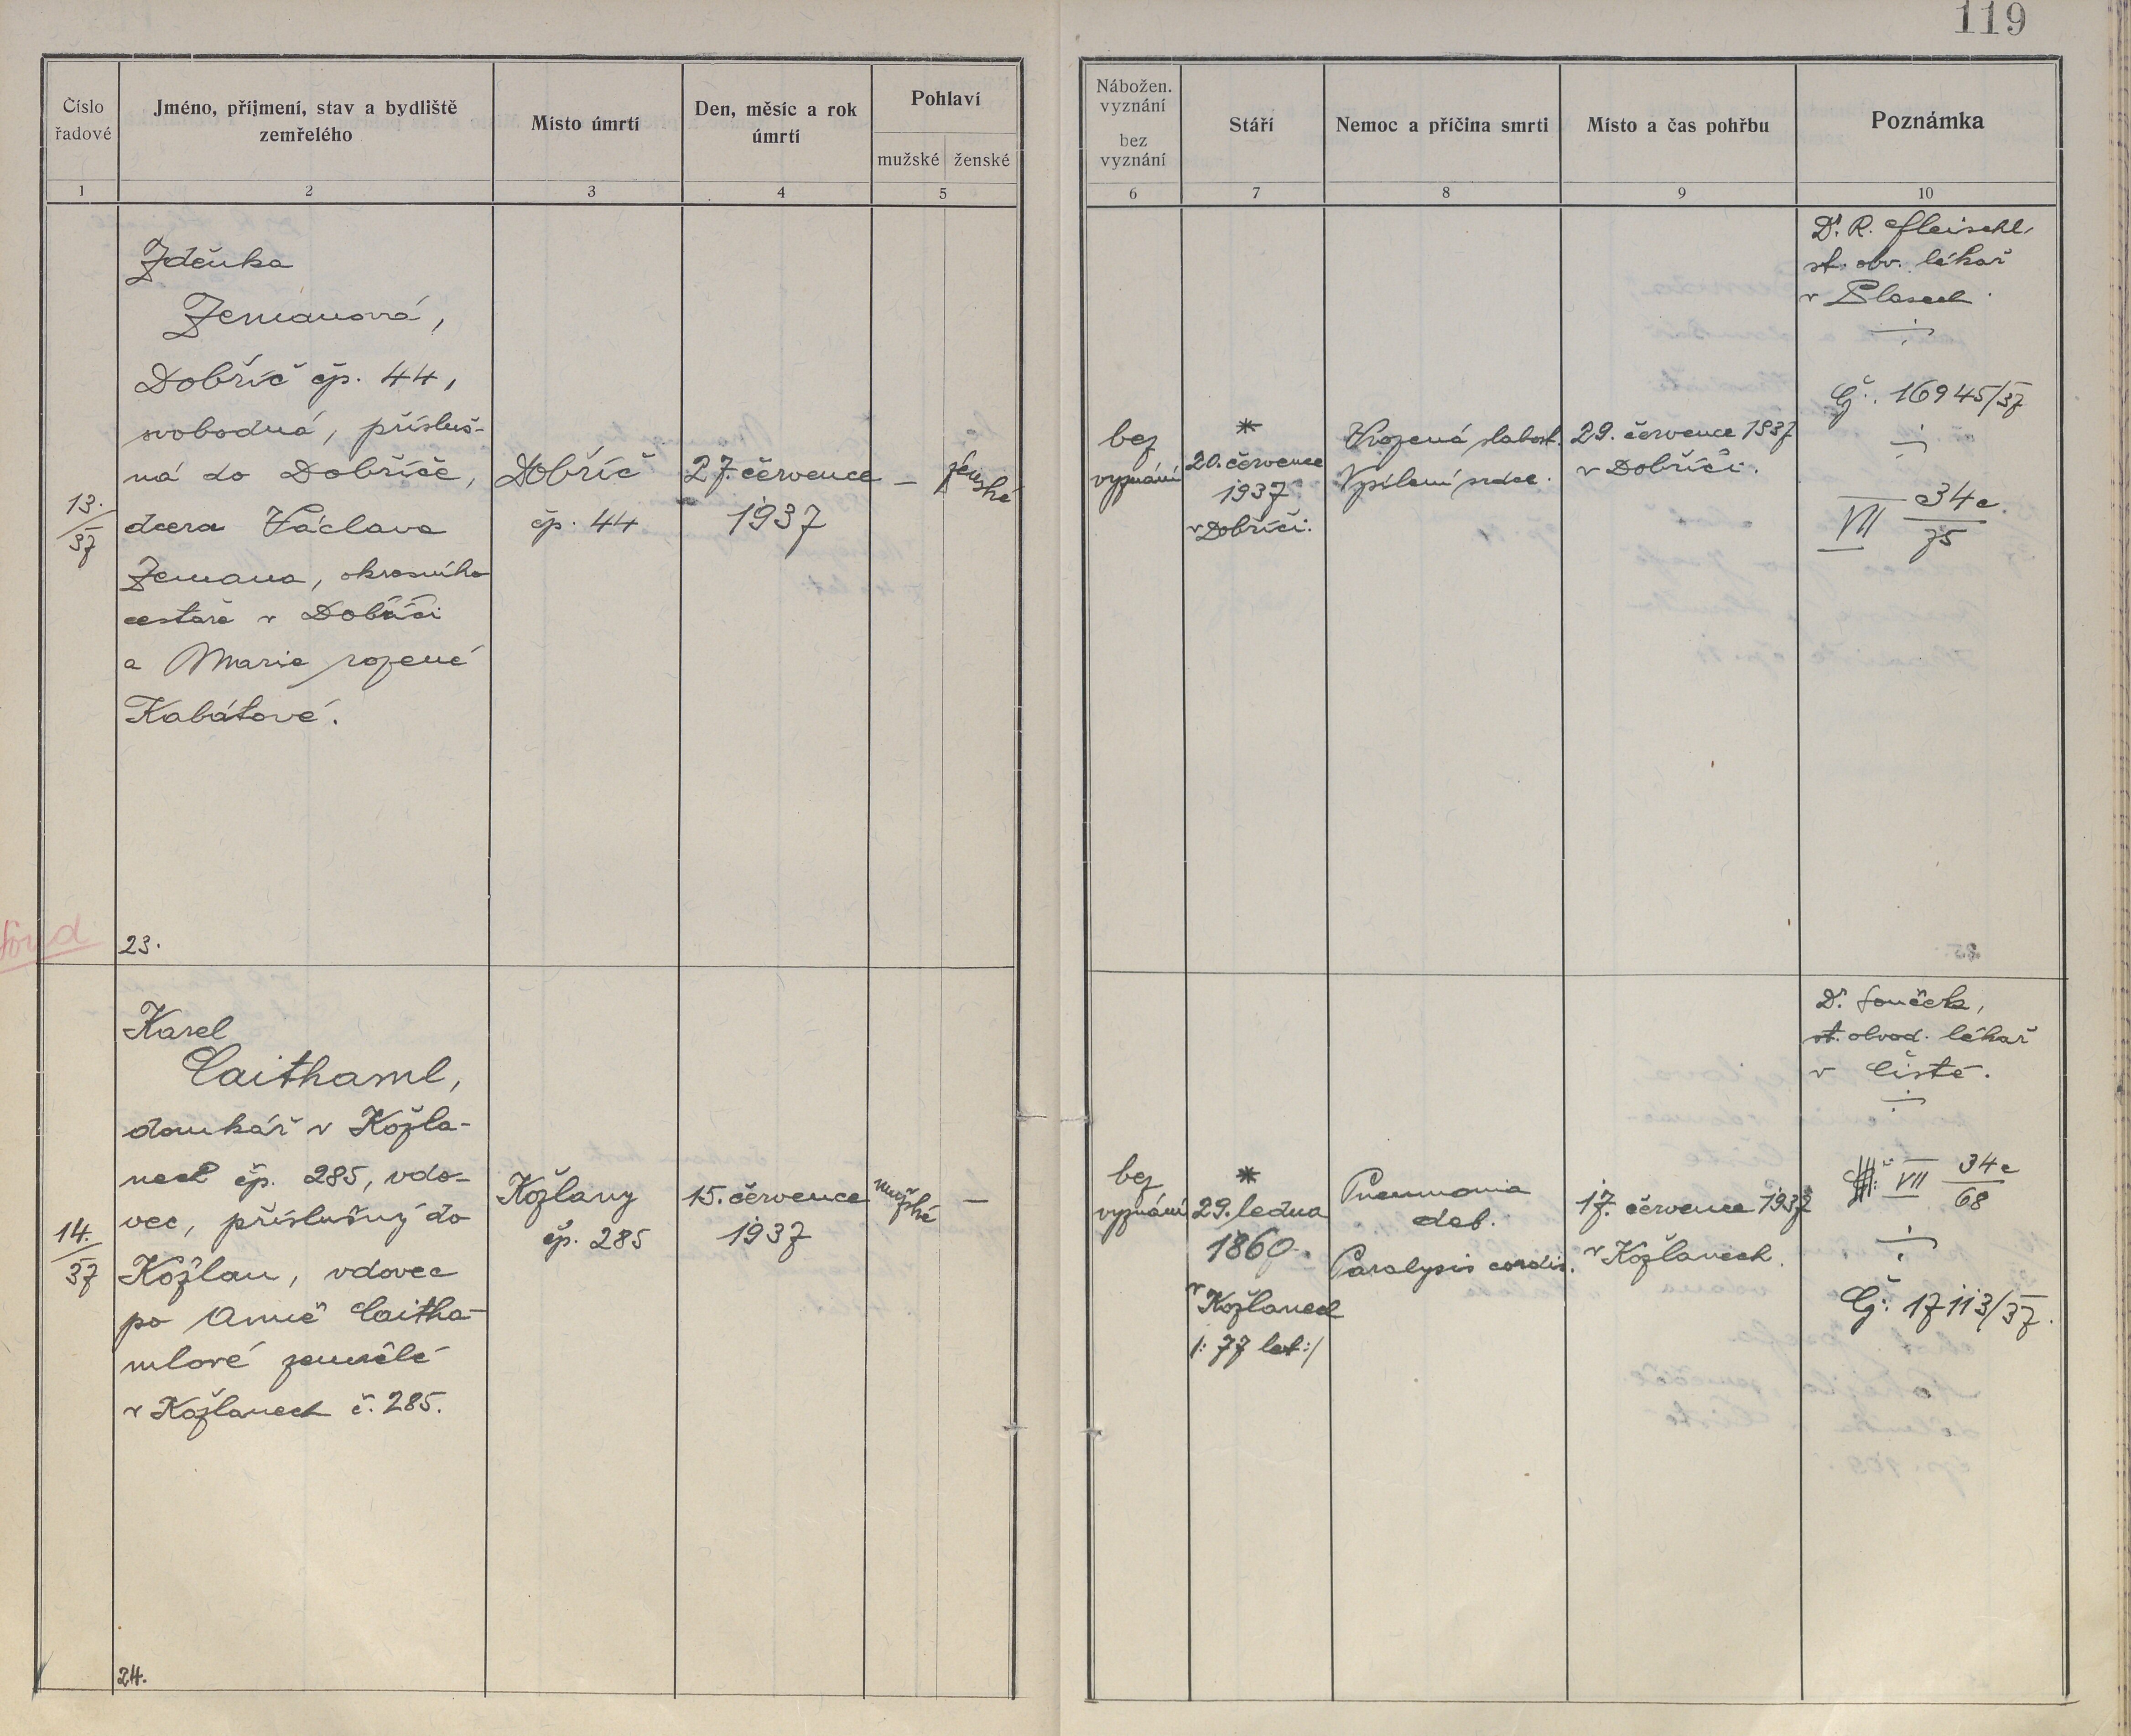 119
Číslo řadové
Jméno, příjmení, stav a bydliště
zemřelého
Místo úmrtí
Den, měsíc a rok
úmrtí
Pohlaví
mužské ženské
Nábožen.
vyznání
bez
vyznání
Stáří
Nemoc a příčina smrti
Místo a čas pohřbu
Poznámka
1 2 3 4 5 6 7 8 9 10
13.
37
Zdeňka
Zemanová,
Dobříč čp. 44,
svobodná, přísluš-
ná do Dobříče,
dcera Václava
Zemana, okresního
cestáře v Dobříči
a Marie rozené
Kabátové.
23.
Dobříč
čp. 44
27. července
1937
—
ženské
bez
vyznání
*
20. července
1937
v Dobříči.
Vrozená slabost.
Ysílení srdce.
29. července 1937
v Dobříči.
Dr. R. Fleischl,
st. obv. lékař
v Plasech.
Čj. 16945/37
VII 34c
75
fond
14.
37
Karel
Caithaml,
domkář v Kožla-
nech čp. 285, vdo-
vec, příslušný do
Kožlan, vdovec
po Anně Caitha-
mlové zemřelé
v Kožlanech č. 285.
24.
Kožlany
čp. 285
15. července
1937
mužské
—
bez
vyznání
*
29. ledna
1860.
v Kožlanech
/: 77 let :/
Pneumonia
deb.
Paralysis cordis.
17. července 1937
v Kožlanech.
Dr. Souček,
st. obvod. lékař
v Čisté.
VII 34c
68
Čj. 17113/37.